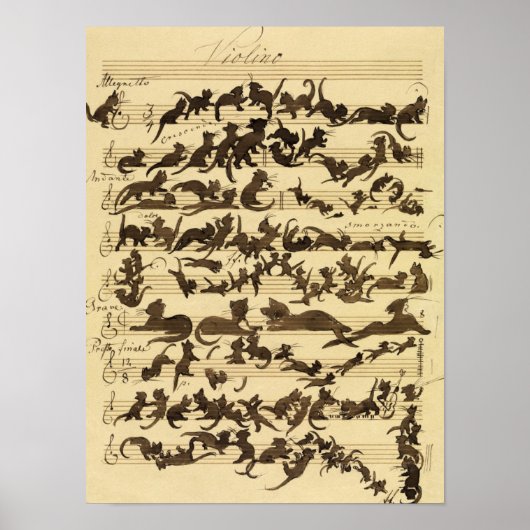 Violino
Allegretto
3
4
crescendo
Andante
dolce
Smorzando.
ff
Grave
Presto finale
12
8
p.